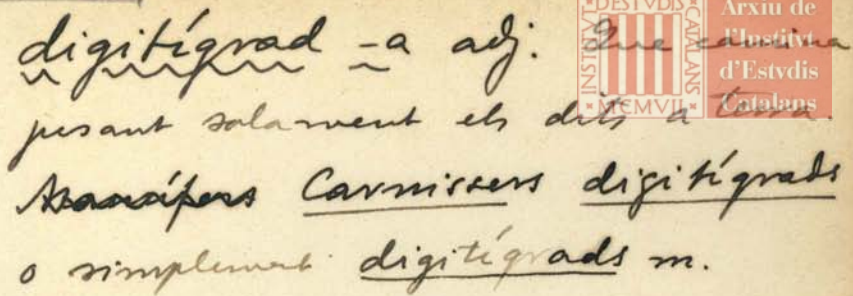 digitígrad -a adj. Que camina
posant solament els dits a terra.
Carnissers digitígrads
o simplement digitígrads m.
INSTITVT D'ESTVDIS CATALANS MCMVII
Arxiu de
l'Institvt
d'Estvdis
Catalans